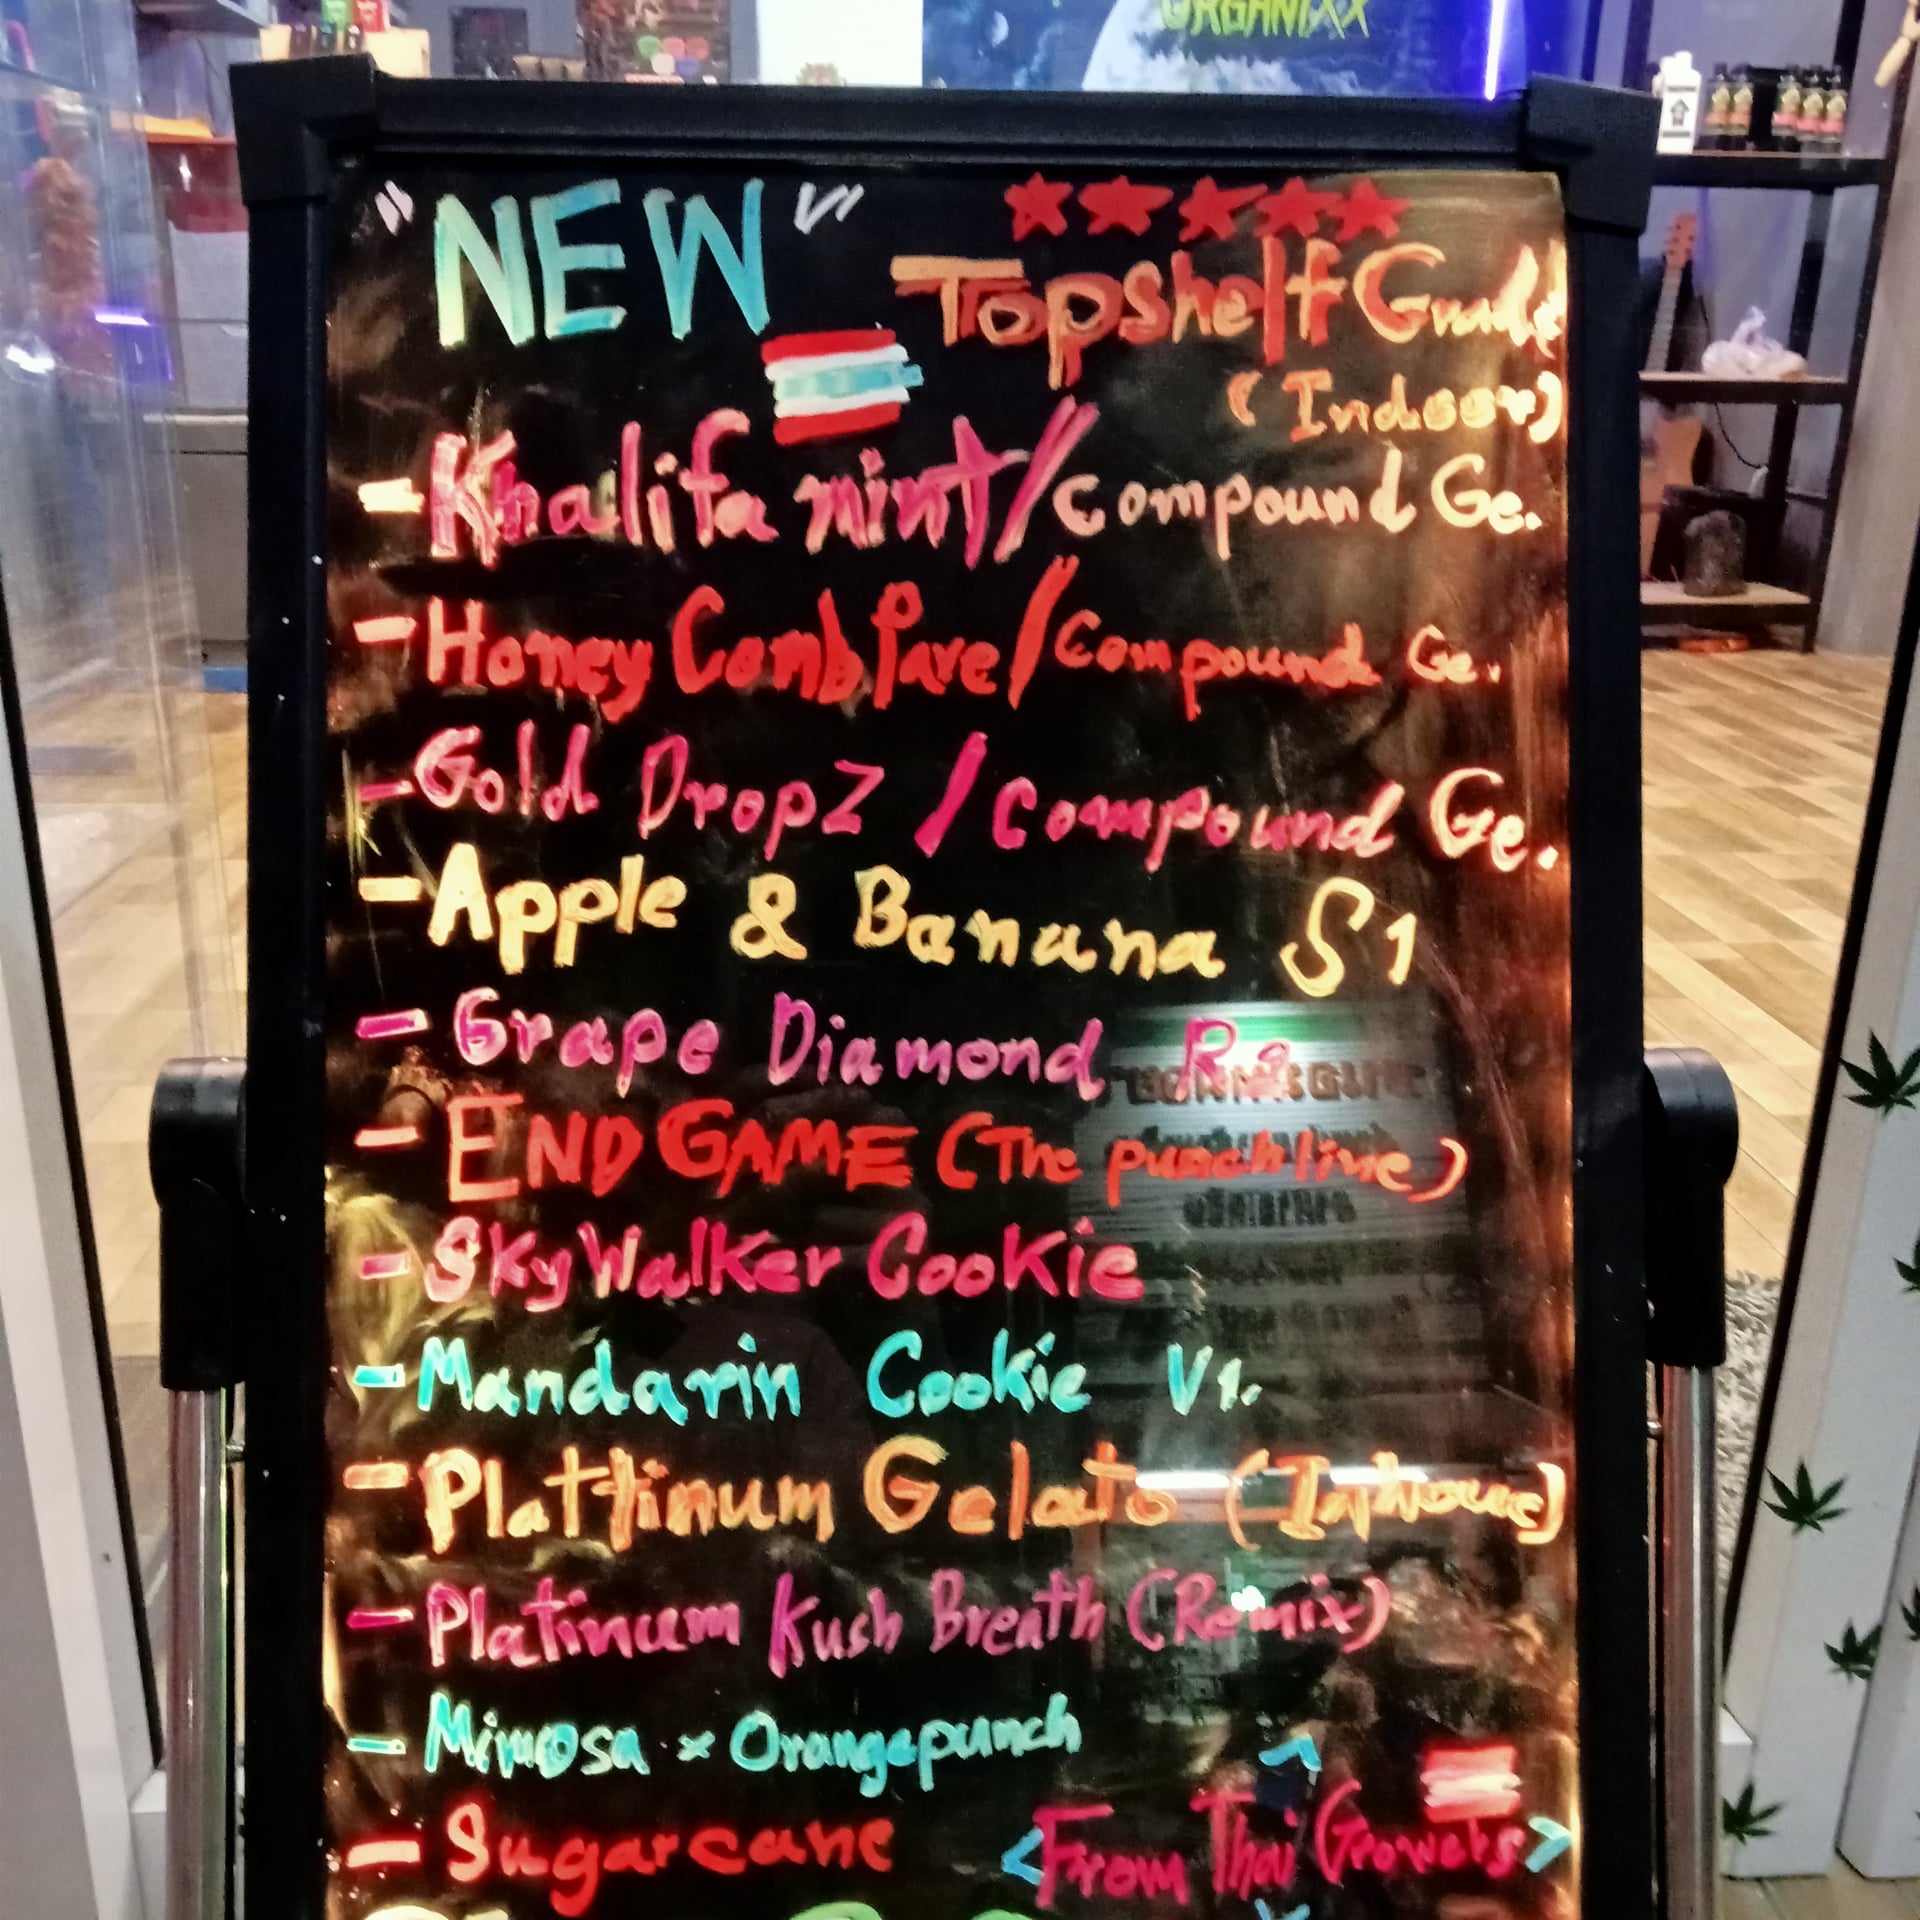 ORGANIXX
"NEW"
Topshelf Grade
(Indoor)
- Khalifa mint/Compound Ge.
- Honey Comb Pare/Compound Ge.
- Gold DropZ / Compound Ge.
- Apple & Banana S1
- Grape Diamond R2
- END GAME (The punchline)
- SkyWalker Cookie
- Mandarin Cookie V1.
- Plattinum Gelato (Inhouse)
- Platinum Kush Breath (Remix)
- Mimosa x Orangepunch
- Sugarcane
<From Thai Growers>